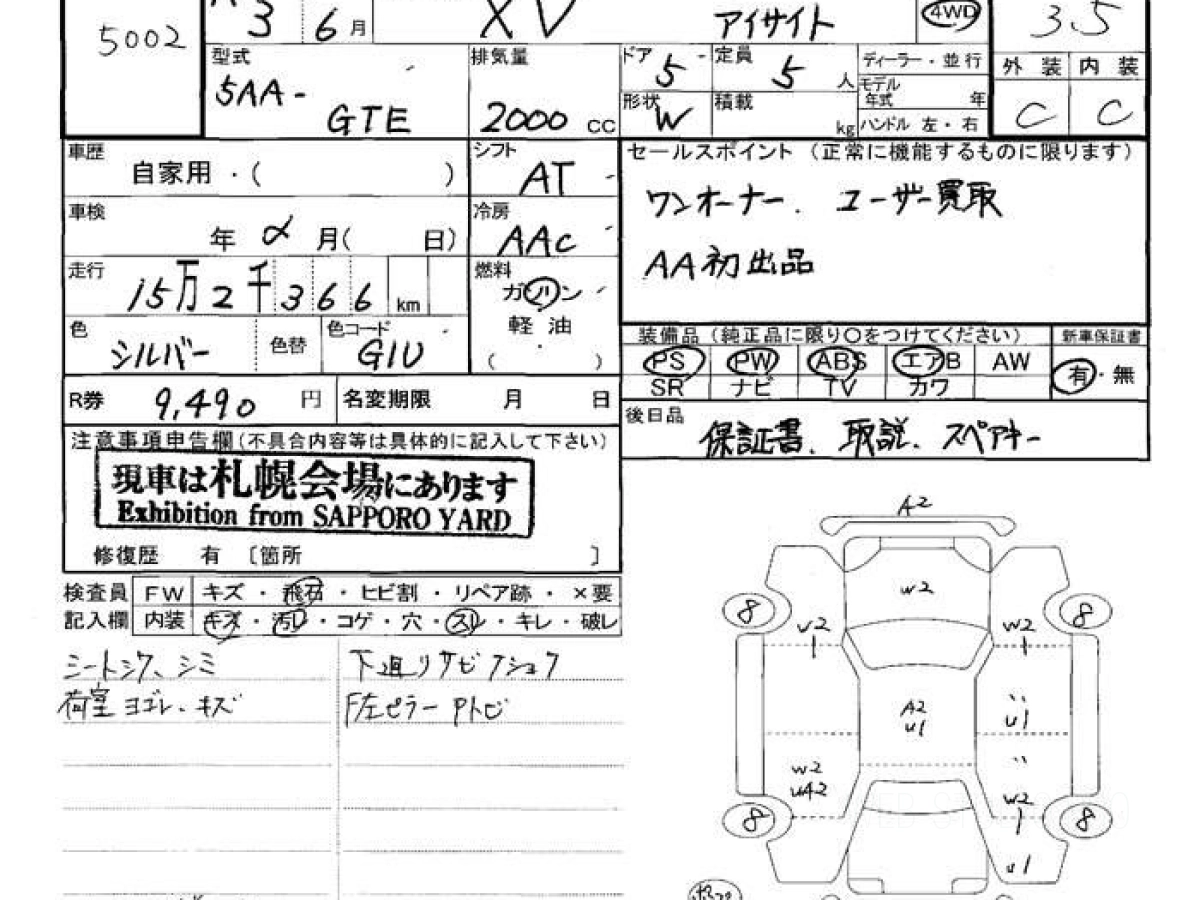 5002
3 6 月
XV
アイサイト
4WD
3.5
型式
5AA-
GTE
排気量
2000 cc
ドア 5
定員 5 人
ディーラー・並行
モデル年式 年
形状 W
積載 kg
ハンドル 左・右
外装 内装
C C
車歴
自家用・( )
シフト
AT
セールスポイント (正常に機能するものに限ります)
ワンオーナー. ユーザー買取
AA初出品
車検
年 月( 日)
冷房
AAC
走行
15万2千366 km
燃料
ガソリン
軽油
( )
色
シルバー
色替
色コード
G1U
装備品 (純正品に限り○をつけてください)
新車保証書
PS PW ABS エアB AW
SR ナビ TV カワ
有・無
R券 9,490 円
名変期限 月 日
後日品
保証書、取説、スペアキー
注意事項申告欄(不具合内容等は具体的に記入して下さい)
現車は札幌会場にあります
Exhibition from SAPPORO YARD
修復歴 有 〔箇所 〕
検査員 FW キズ・飛石・ヒビ割・リペア跡・×要
記入欄 内装 キズ・汚レ・コゲ・穴・スレ・キレ・破レ
シートシワ、シミ
荷室 ヨゴレ、キズ
下廻リサビフショク
F左ピラー Pトビ
A2
W2
8 8
U2 W2
A2
U1
U1
W2
U42
W2
8 8
U1